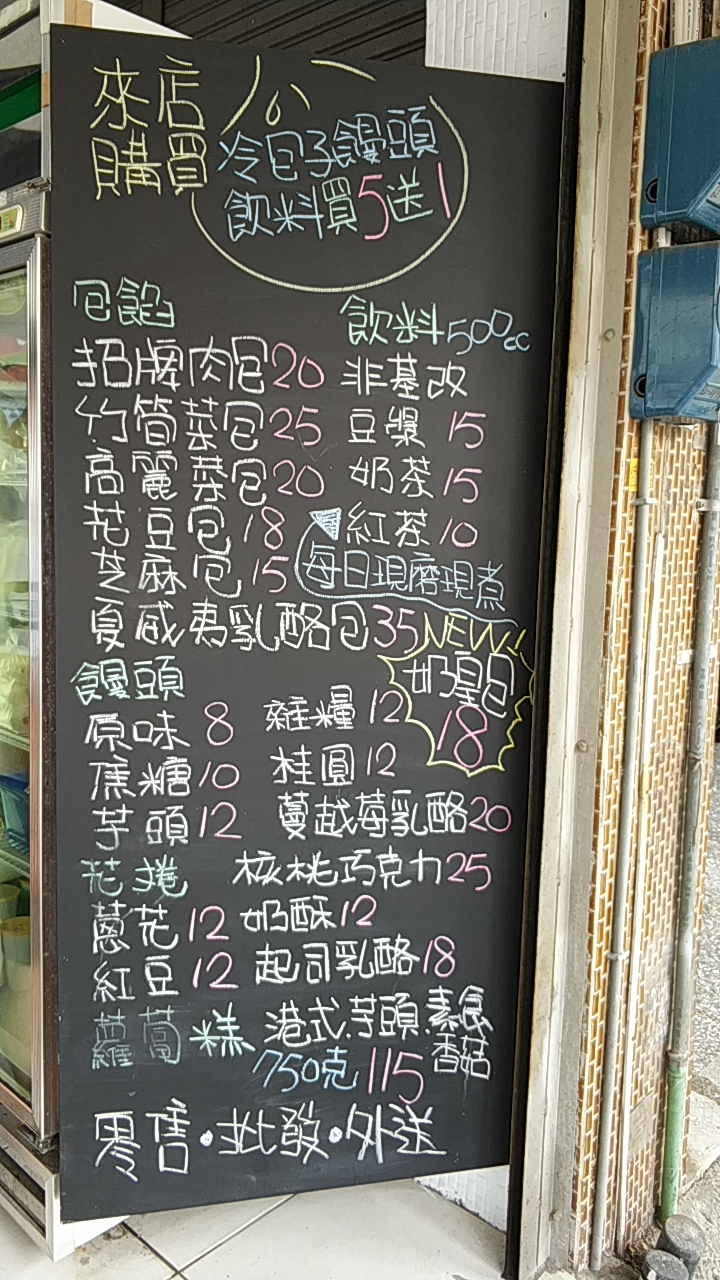 來店
購買
冷包子饅頭
飲料買5送1
包餡
招牌肉包20
竹筍菜包25
高麗菜包20
花豆包18
芝麻包15
夏威夷乳酪包35
飲料500cc
非基改
豆漿 15
奶茶 15
紅茶 10
每日現磨現煮
NEW!!
奶皇包
18
饅頭
原味 8
焦糖 10
芋頭 12
雜糧 12
桂圓 12
蔓越莓乳酪20
核桃巧克力25
奶酥12
起司乳酪18
花捲
蔥花12
紅豆12
蘿蔔糕
港式.芋頭.素食
香菇
750克 115
零售·批發·外送